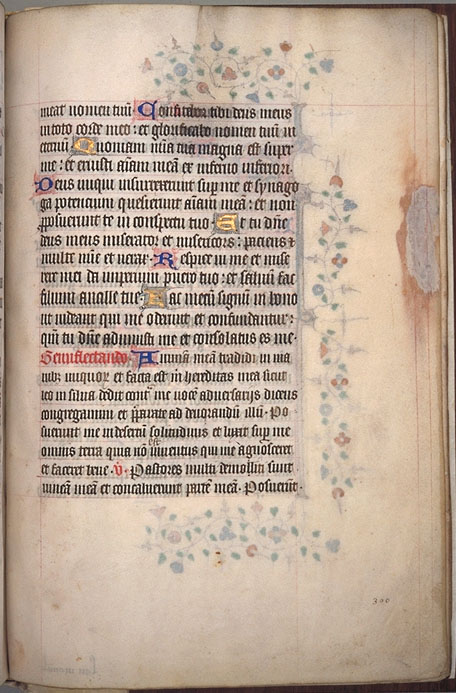 meat nomen tuũ Confitebor tibi deus meus
in toto corde meo : et glorificabo nomen tuũ in
eternũ Quoniam mĩa tua magna est super
me : et eruisti aĩam meã ex inferno inferiori·
Deus iniqui insurrexerunt sup me et synago
ga potencium quesierunt aĩam meã : et non
pposuerunt te in conspectu tuo Et tu dñe
deus meus miserator et misericors : paciens ⁊
multe mĩe et verax · Respice in me et mise
rere mei da imperium puero tuo : et saluum fac
filium ancille tue Fac mecũ signũ in bono
ut uideant qui me oderunt et confundantur :
qm̃ tu dñe adiuuisti me et consolatus es me·
Genuflectando· Animã meã tradidi in ma
nibz iniquoꝝ et facta est m̃ hereditas mea sicut
leo in silua dedit contᵃ me uocẽ aduersariꝰ dicens
congregamini et pparate ad deuorandũ illũ · Po
suerunt me in deserto solitudinis et luxit sup me
omnis terra quia nõ est inuentus qui me agnosceret
et faceret bene · v̄ · Pastores multi demoliti sunt
vineã meã et conculcauerunt partẽ meã · Posuerũt·
300